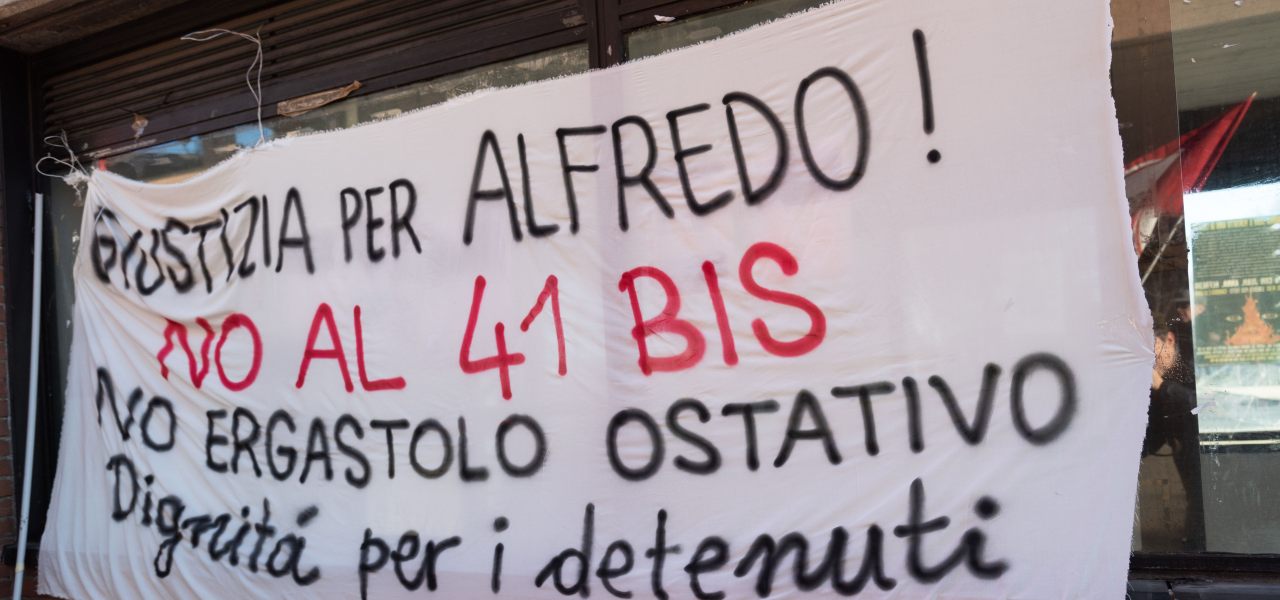 GIUSTIZIA PER ALFREDO!
NO AL 41 BIS
NO ERGASTOLO OSTATIVO
Dignitá per i detenuti